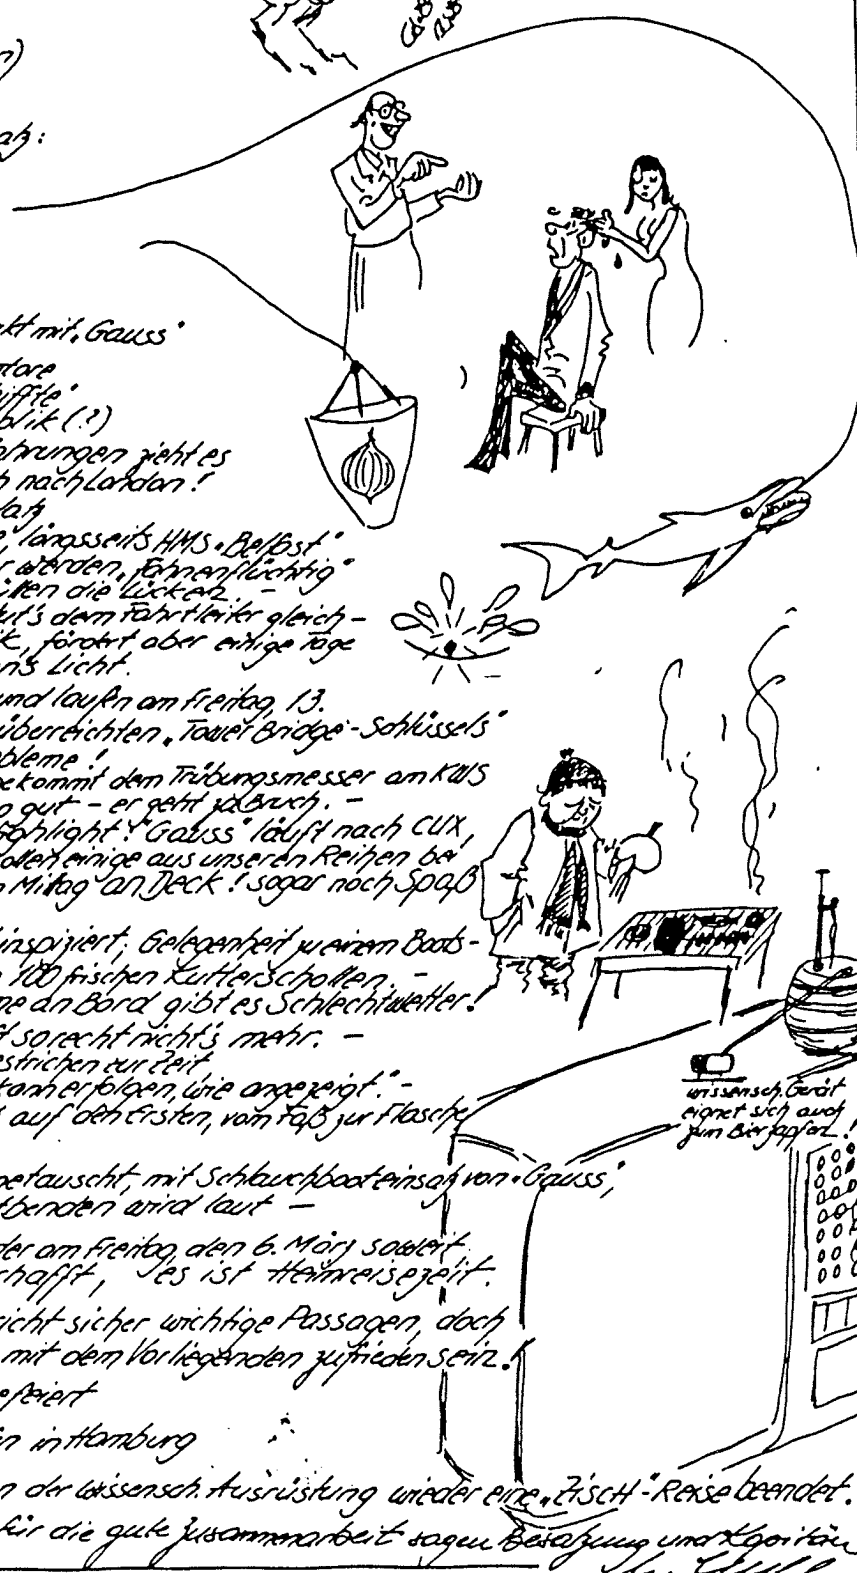 atz:
kt mit „Gauss“
tore
iffte“
blik (?)
ahrungen zieht es
h nach London!
latz
e, längsseits HMS „Belfast“
r werden „fahnenflüchtig“
üllen die Lücken. –
tut's dem Fahrtleiter gleich –
ik, fördert aber einige Tage
an's Licht.
und laufen am Freitag, 13.
überreichten „Tower Bridge-Schlüssels“
obleme!
bekommt dem Trübungsmesser am KWS
n gut – er geht zu Bruch. –
ighlight! „Gauss“ läuft nach CUX,
ollen einige aus unseren Reihen bei
n Mittag an Deck! sogar noch Spaß
inspiziert; Gelegenheit zu einem Boots-
n 100 frischen Kutterschollen. –
me an Bord gibt es Schlechtwetter!
ft so recht nicht's mehr. –
estrichen zur Zeit
kann erfolgen, wie angezeigt.“ –
t auf den Ersten, vom Faß zur Flasche
wissensch. Gerät
eignet sich auch
zum Bierzapfen!
netauscht, mit Schlauchbooteinsatz von „Gauss“,
tbenden wird laut –
der am Freitag, den 6. März soweit
chafft, es ist Heimreisezeit.
icht sicher wichtige Passagen, doch
mit dem Vorliegenden zufrieden sein.!
efeiert
en in Hamburg
n der wissensch. Ausrüstung wieder eine „ZISCH“-Reise beendet.
für die gute Zusammenarbeit sagen Besatzung und Kapitän